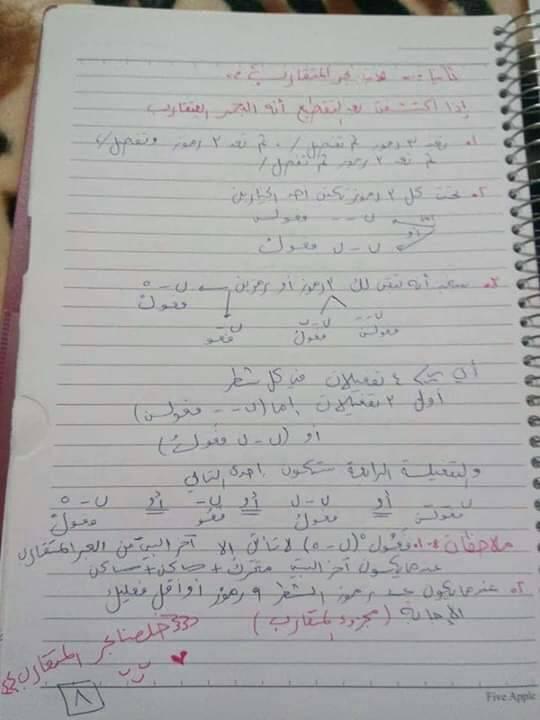 ثانياً :- بحر المتقارب :-
إذا اكتشفت بعد التقطيع أنه البحر المتقارب
١. نعد ٣ رموز ثم نفصل / ، ثم نعد ٣ رموز ونفصل /
ثم نعد ٣ رموز ثم نفصل /
٢. تحت كل ٣ رموز نكتب احد الخيارين
إما ب - - فعولن
أو ب - ب فعولُ
٣. بعد أن تبقى لك ٣ رموز أو رمزين ← ب - ه
فعولْ
فعولن فعولُ فعو
أي ٤ تفعيلات في كل شطر
أول ٣ تفعيلات إما (ب - - فعولن)
أو (ب - ب فعولُ)
والتفعيلة الرابعة ستكون إحدى التالي
ب - - أو ب - ب أو ب - أو ب - ه
فعولن فعولُ فعو فعولْ
ملاحظات :- ١. فعولْ (ب - ه) لا تأتي إلا آخر البيت من البحر المتقارب
عندما يكون آخر البيت متحرك + ساكن + ساكن
٢. عندما يكون عدد رموز الشطر ٩ رموز أو أقل فعليك
الإجابة (مجزوء المتقارب)
خلصنا بحر المتقارب
٨
Five Apple